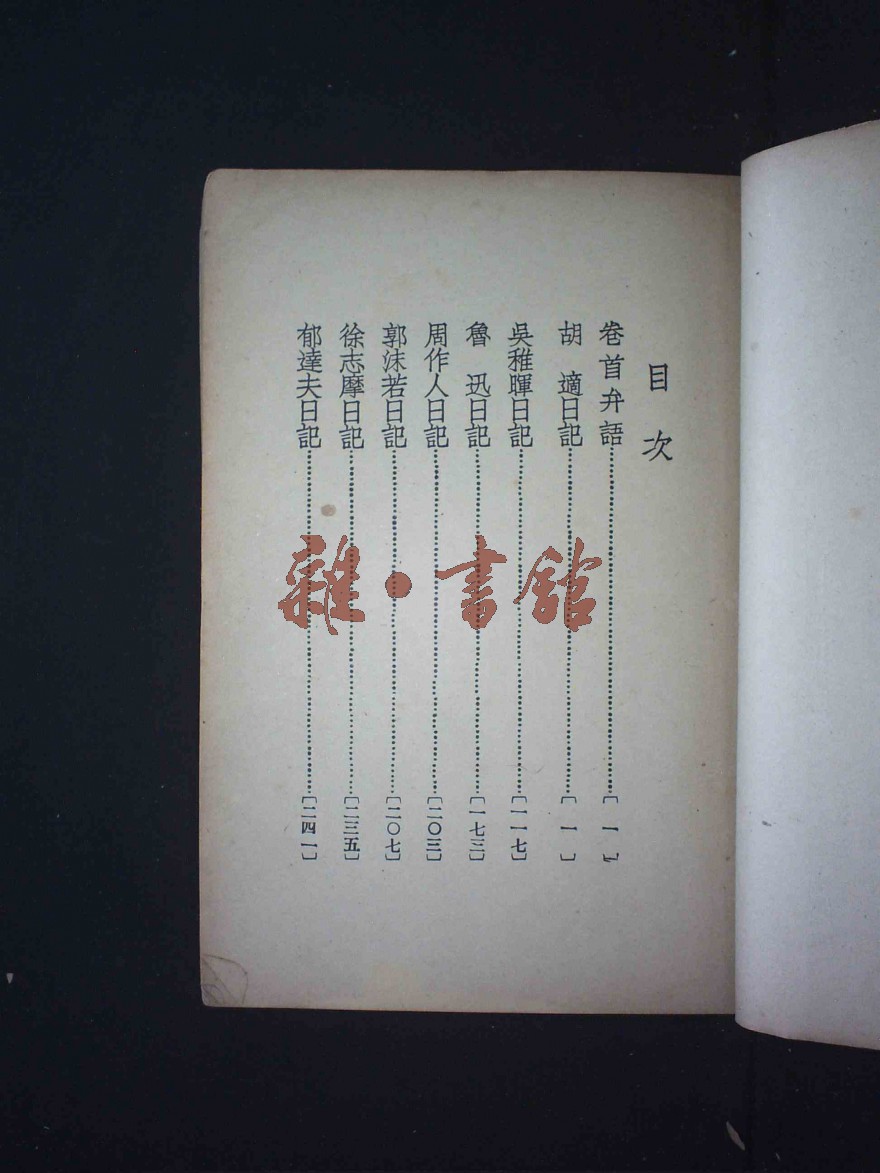 目次
卷首弁語………〔一〕
胡適日記………〔一〕
吳稚暉日記………〔一一七〕
魯迅日記………〔一七三〕
周作人日記………〔二〇三〕
郭沫若日記………〔二〇七〕
徐志摩日記………〔二三五〕
郁達夫日記………〔二四一〕
雜·書館